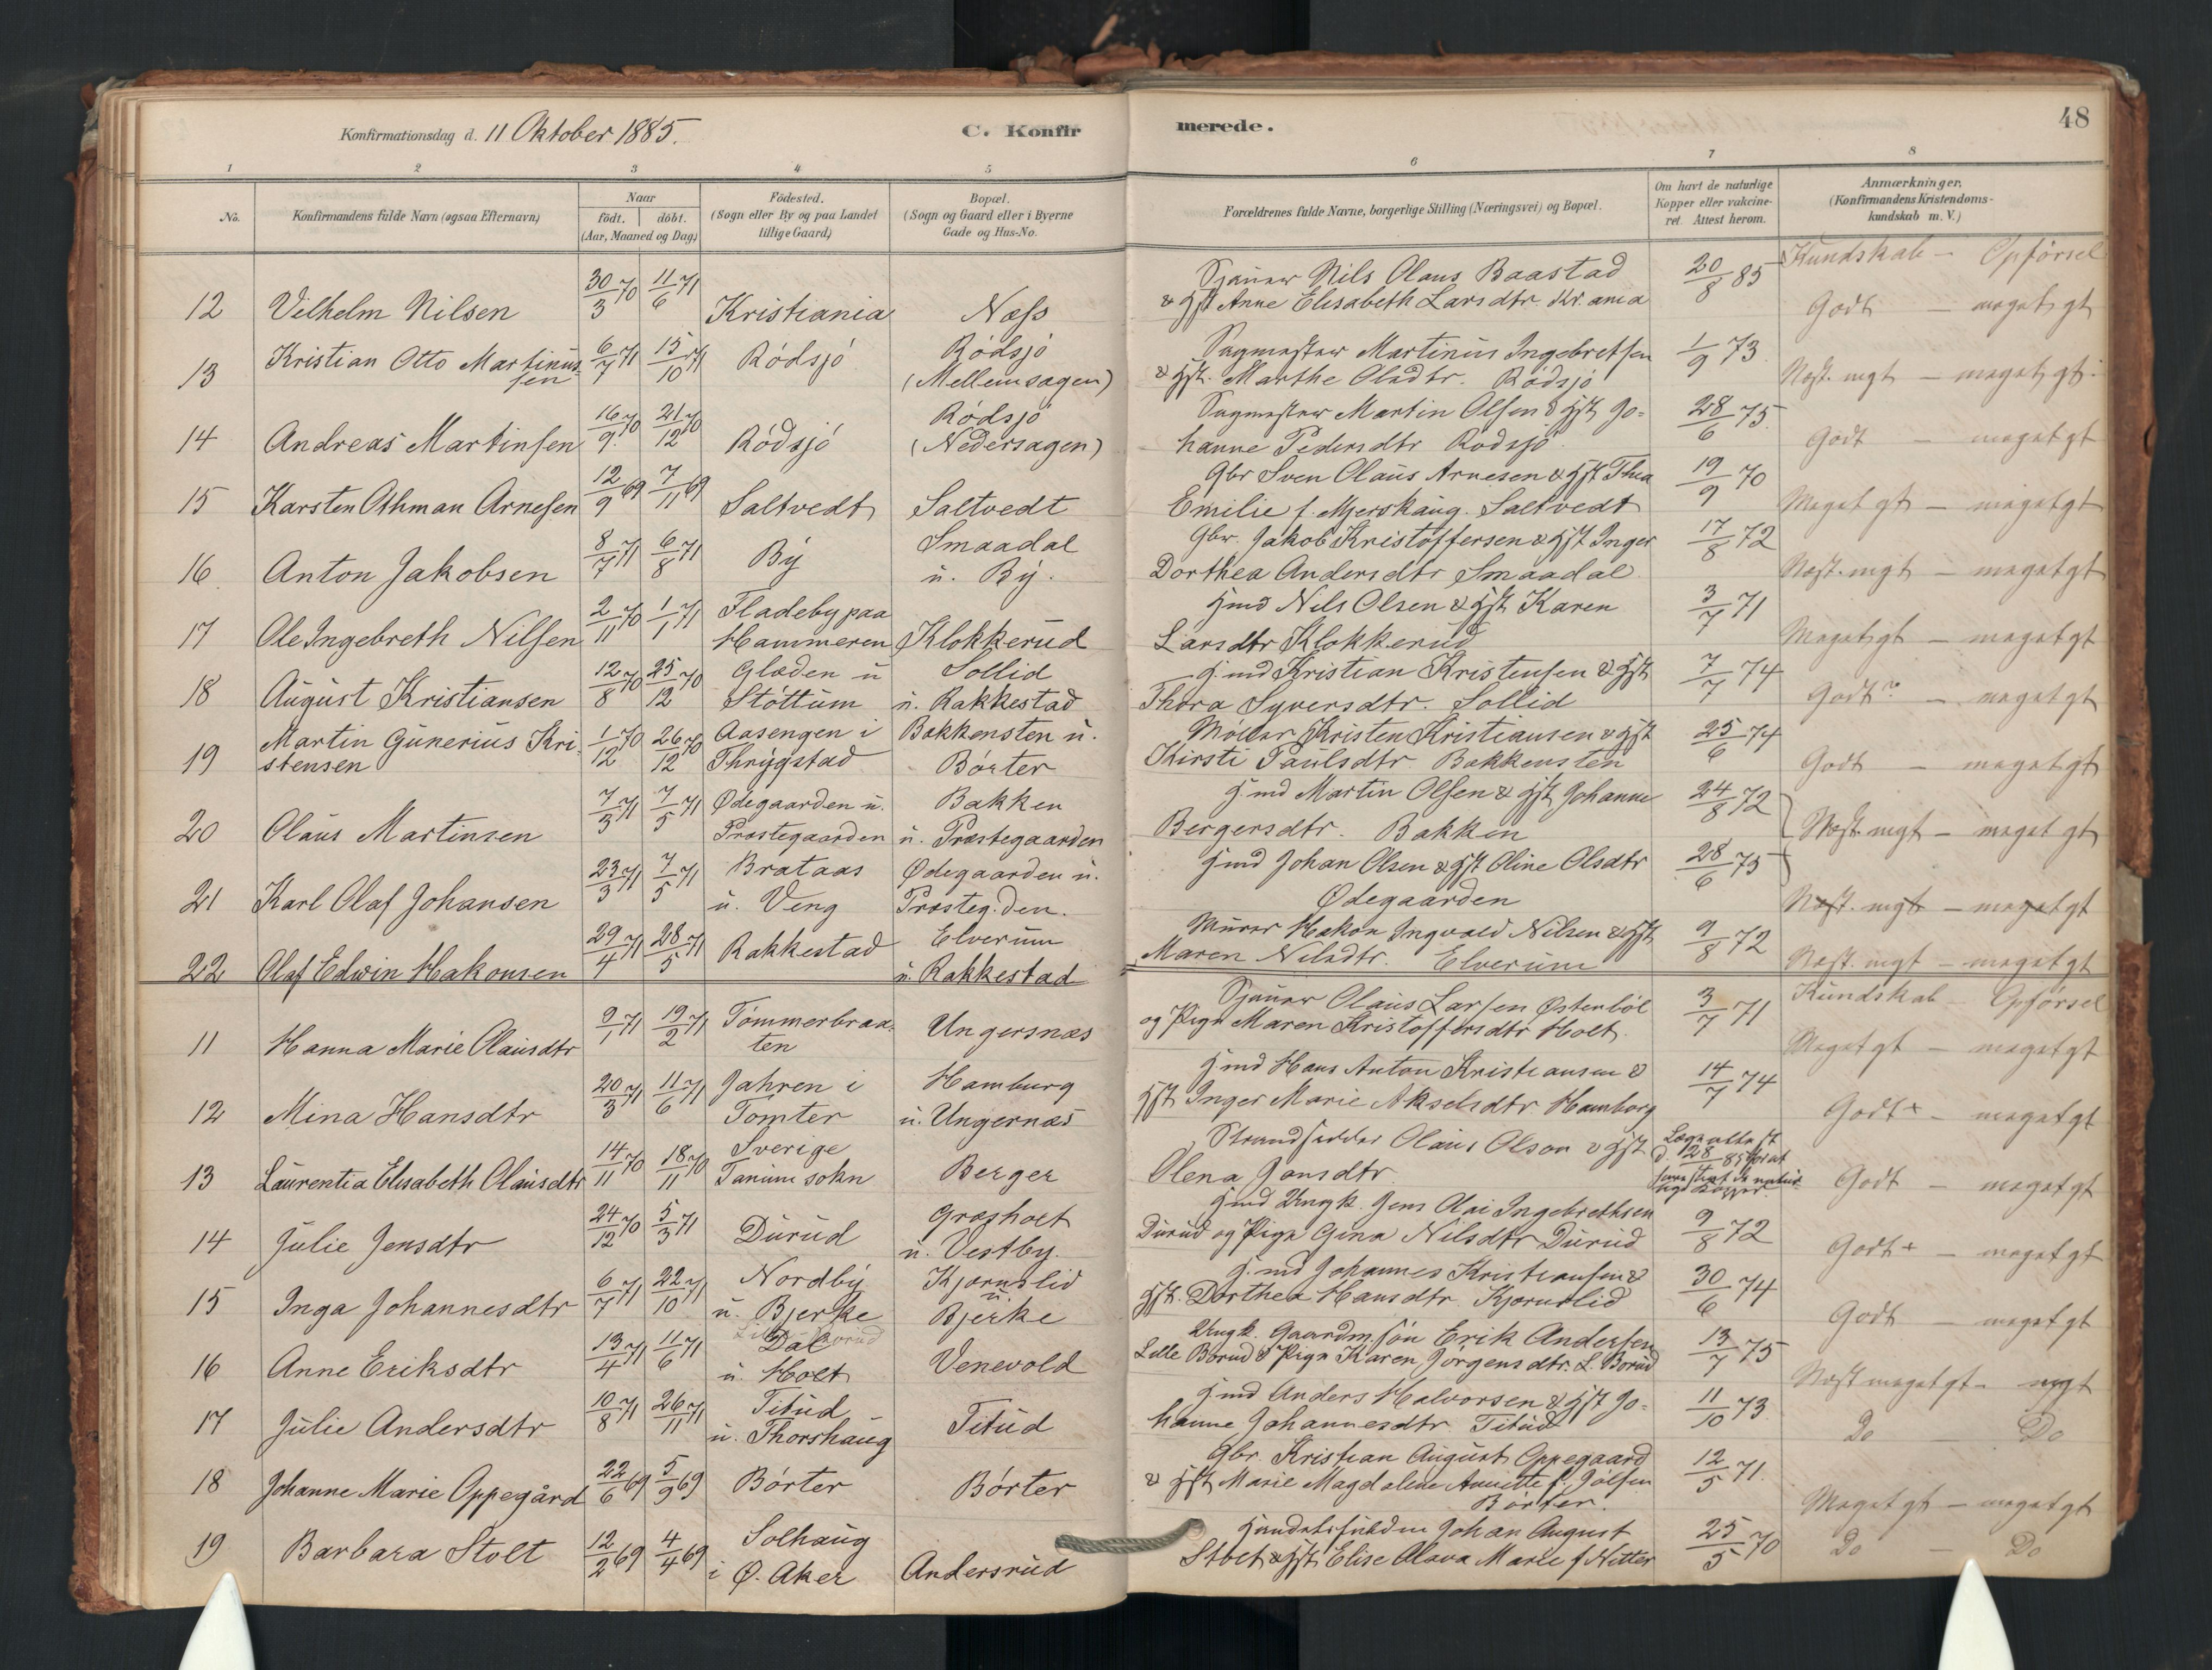 Konfirmationsdag d. 11 Oktober 1885.
C. Konfirmerede.
48
1 2 3 4 5 6 7 8
No.
Konfirmandens fulde Navn (ogsaa Efternavn)
Naar
födt. döbt.
(Aar, Maaned og Dag)
Födested.
(Sogn eller By og paa Landet
tillige Gaard)
Bopæl.
(Sogn og Gaard eller i Byerne
Gade og Hus-No.
Forældrenes fulde Navne, borgerlige Stilling (Næringsvei) og Bopæl.
Om havt de naturlige
Kopper eller vakcine-
ret. Attest herom.
Anmærkninger,
(Konfirmandens Kristendoms-
kundskab m. V.)
Kundskab – Opförsel
12 Vilhelm Nilsen 30/3 70 11/6 71 Kristiania Næss
Sjauer Nils Olaus Baastad
& Hst Anne Elisabeth Larsdtr Kr.ania
20/8 85 Godt – meget gt
13 Kristian Otto Martinus-
sen 6/7 71 15/10 71 Rödsjö
Rödsjö
(Mellemsagen)
Sagmester Martinus Ingebretsen
& Hst. Marthe Olsdtr. Rödsjö
1/9 73 Næst. mgt – meget gt.
14 Andreas Martinsen 16/9 70 21/12 70 Rödsjö
Rödsjö
(Nedersagen)
Sagmester Martin Olsen & Hst Jo-
hanne Pedersdtr Rödsjö
28/6 75 Godt – meget gt
15 Karsten Othman Arnesen 12/9 69 7/11 69 Saltvedt Saltvedt
Gbr Sven Olaus Arnesen & Hst Thea
Emilie f. Mjerskaug. Saltvedt
19/9 70 Meget gt – meget gt
16 Anton Jakobsen 8/7 71 6/8 71 By
Smaadal
u. By.
Gbr. Jakob Kristoffersen & Hst Inger
Dorthea Andersdtr Smaadal
17/8 72 Næst. mgt – meget gt
17 Ole Ingebreth Nilsen 2/11 70 1/1 71
Fladeby paa
Hammeren Klokkerud
Hmd Nils Olsen & Hst Karen
Larsdtr Klokkerud
3/7 71 Meget gt – meget gt
18 August Kristiansen 12/8 70 25/12 70
Glæden u
Stöttum
Sollid
u. Rakkestad
Hmd Kristian Kristensen & Hst
Thora Syversdtr. Sollid
7/7 74 Godt – meget gt
19 Martin Gunerius Kri-
stensen 1/12 70 26/12 70
Aasengen i
Thrygstad
Bakkensten u.
Börter
Möller Kristen Kristiansen & Hst
Kirsti Paulsdtr. Bakkensten
25/6 74 Godt – meget gt
20 Olaus Martinsen 7/3 71 7/5 71
Ødegaarden u.
Præstegaarden
Bakken
u. Præstegaarden
Hmd Martin Olsen & Hst Johanne
Bergersdtr. Bakken
24/8 72 Næst. mgt – meget gt
21 Karl Olaf Johansen 23/3 71 7/5 71
Brataas
u. Veng
Ødegaarden u.
Præsteg.den.
Hmd Johan Olsen & Hst Oline Olsdtr
Ødegaarden
28/6 75 Næst. mgt – meget gt
22 Olaf Edwin Hakonsen 29/4 71 28/5 71 Rakkestad
Elverum
u. Rakkestad
Murer Hakon Ingvald Nilsen & Hst
Maren Nilsdtr. Elverum
9/8 72 Næst. mgt – meget gt
Kundskab – Opförsel
11 Hanna Marie Olausdtr 9/1 71 19/2 71
Tömmerbraa-
ten
Ungersnæs
Sjauer Olaus Larsen Østenböl
og Pige Maren Kristoffersdtr Holt.
3/7 71 Meget gt – meget gt
12 Mina Hansdtr 20/3 71 11/6 71
Jahren i
Tomter
Hamburg
u. Ungernæs
Hmd Hans Anton Kristiansen &
Hst Inger Marie Akselsdtr Hamborg
14/7 74 Godt+ – meget gt
13 Laurentia Elisabeth Olausdtr 14/11 70 18/11 70
Sverige
Tanum sokn
Berger
Strandsidder Olaus Olson & Hst
Olena Jonsdtr
Godt – meget gt
14 Julie Jensdtr 24/12 70 5/3 71 Durud
Græsholt
u. Vestby.
Hmd Ungk. Jens Olai Ingebrethsen
Durud og Pige Gina Nilsdtr Durud
9/8 72 Godt+ – meget gt
15 Inga Johannesdtr 6/7 71 22/10 71
Nordby
u. Bjerke
Kjærnslid
u
Bjerke
Hmd Johannes Kristiansen &
Hst. Dorthea Hansdtr. Kjærnslid
30/6 74 Godt – meget gt
16 Anne Eriksdtr 13/4 71 11/6 71
Dal
u. Holt
Venevold
Ungk. Gaardm. sön Erik Andersen
Lille Borud & Pige Karen Jörgensdtr. L. Borud
13/7 75 Næst meget gt – mgt
17 Julie Andersdtr 10/8 71 26/11 71
Titud
u. Thorshaug
Titud
Hmd Anders Halvorsen & Hst Jo-
hanne Johannesdtr Titud
11/10 73 Do – Do
18 Johanne Marie Oppegård 22/6 69 5/9 69 Börter Börter
Gbr. Kristian August Oppegaard
& Hst Marie Magdalene Annette f. Jölsen
Börter.
12/5 71. Meget gt – meget gt
19 Barbara Stolt 12/2 69 4/4 69
Solhaug
i Ø. Aker
Andersrud
Johan August
Stolt & Hst Elise Olava Marie f Hitter
25/5 70 Do – Do